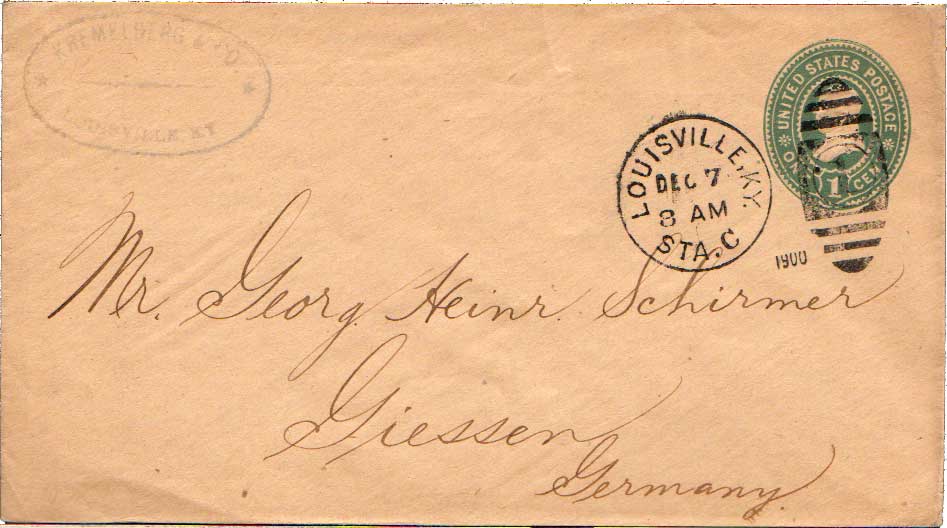 KREMELBERG & CO.
LOUISVILLE KY
UNITED STATES POSTAGE
ONE 1 CENT
LOUISVILLE, KY.
DEC 7
8 AM
STA. C
1900
1
Mr. Georg Heinr. Schirmer
Giessen
Germany